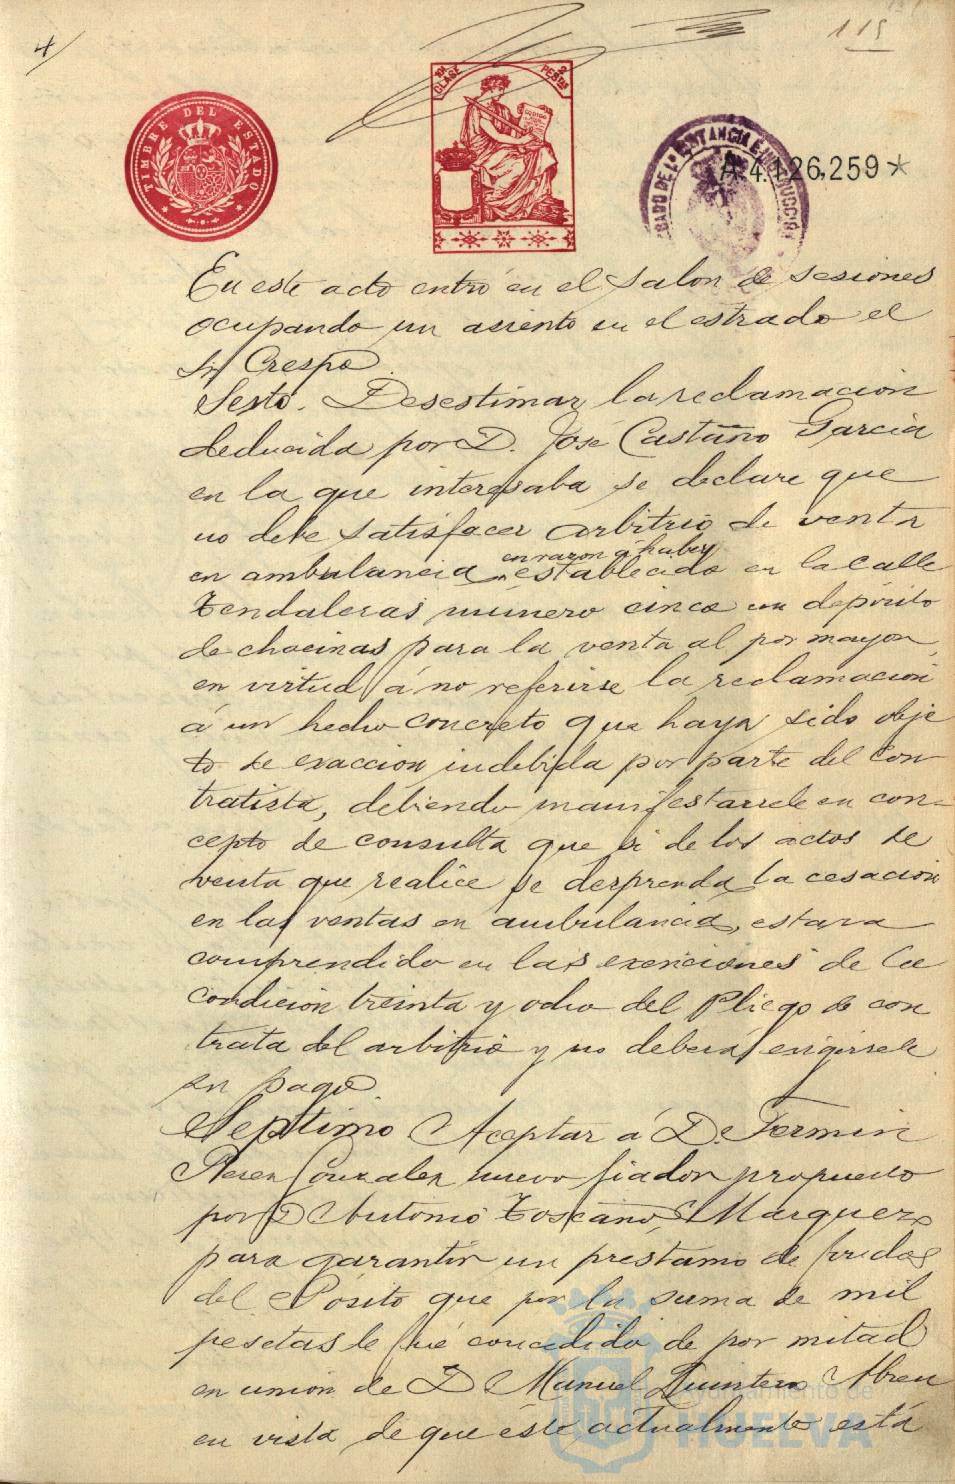 4/
115
TIMBRE DEL ESTADO
10ª CLASE 2 PESTAS
JUZGADO DE 1ª INSTANCIA E INSTRUCCIÓN
A.4.126,259*
En este acto entró en el salon de sesiones
ocupando un asiento en el estrado el
Sr Crespo.
Sesto. Desestimar la reclamación
deducida por D. José Castaño García
en la que interesaba se declare que
no debe satisfacer arbitrio de venta
en razon á haber
en ambulancia establecido en la calle
Tendaleras número cinco un depósito
de chacinas para la venta al por mayor,
en virtud á no referirse la reclamación
á un hecho concreto que haya sido obje
to de exaccion indebida por parte del con
tratista, debiendo manifestarsele en con-
cepto de consulta que si de los actos de
venta que realice se desprenda la cesación
en las ventas en ambulancia, estara
comprendido en las exenciones de la
condición treinta y ocho del Pliego de con
trata del arbitrio y no deberá exigirsele
su pago
Septimo Aceptar á D. Fermin
Perez Gonzalez nuevo fiador propuesto
por D Antonio Toscano Marquez
para garantir un préstamo de fondos
del Pósito que por la suma de mil
pesetas le fué concedido de por mitad
en unión de D Manuel Quintero Abreu
en vista de que éste actualmente está
Ayuntamiento de
HUELVA